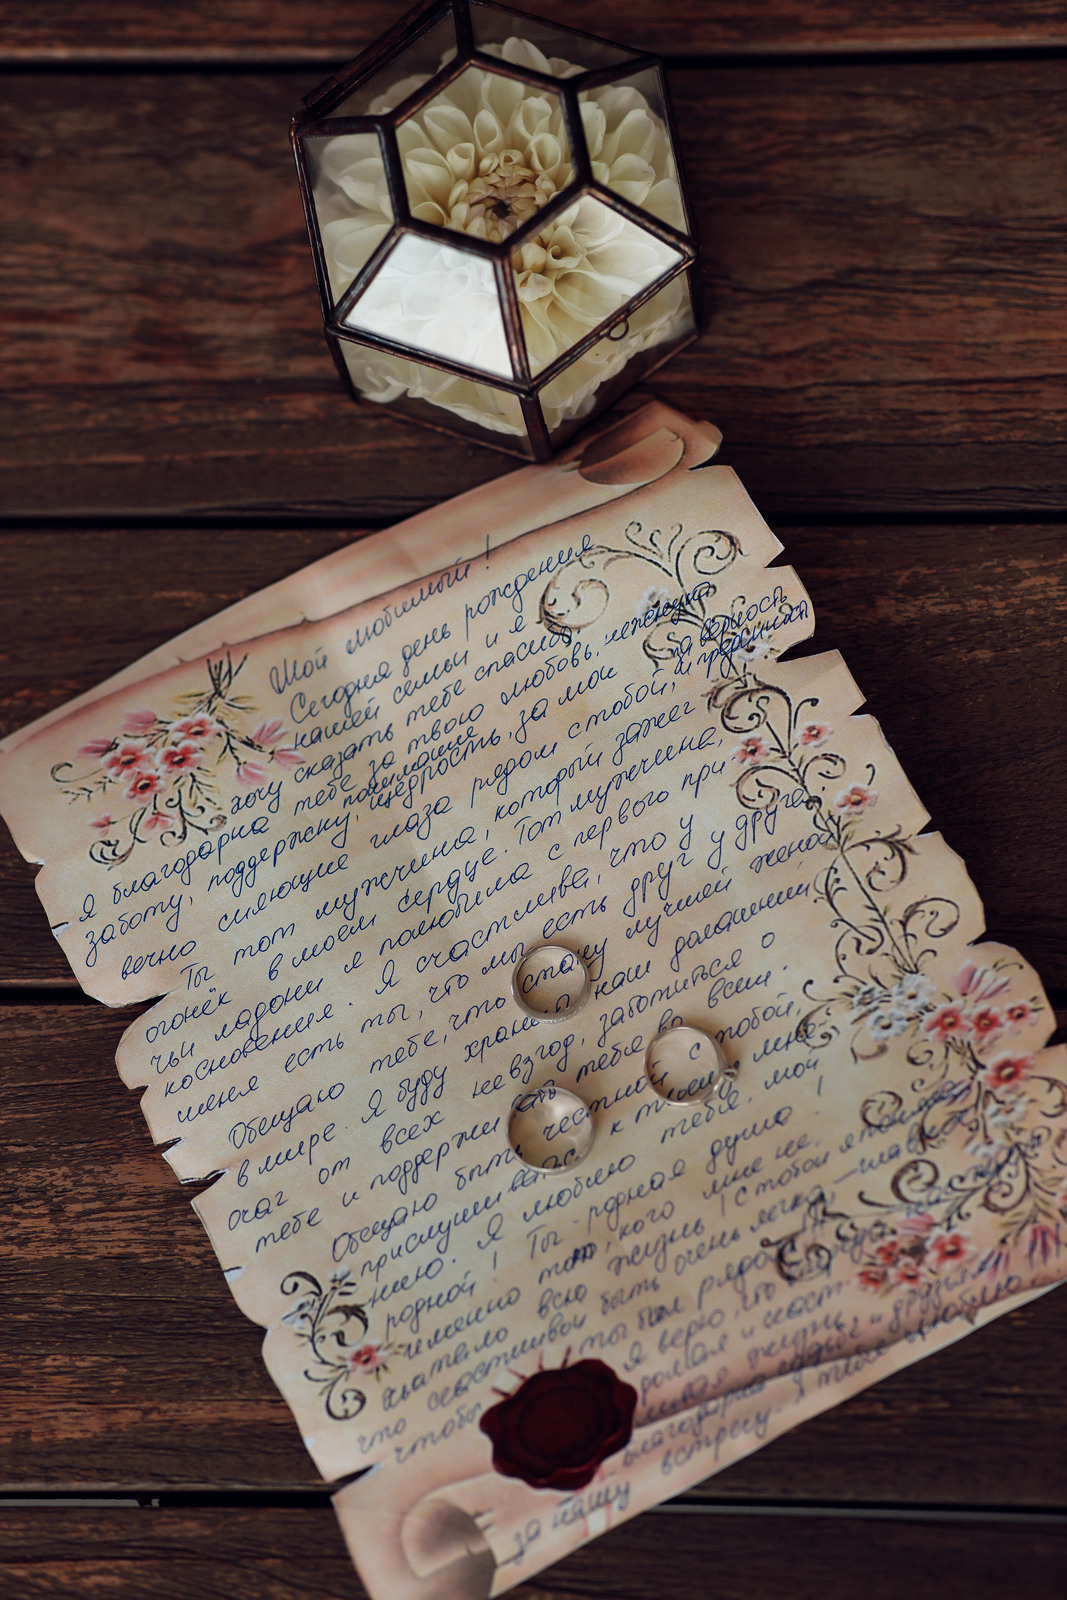 Мой любимый!
Сегодня день рождения
нашей семьи и я
хочу сказать тебе спасибо.
Я благодарна тебе за твою любовь, нежную
заботу, поддержку, понимание, щедрость, за мои за верность
вечно сияющие глаза рядом с тобой, и преданность
Ты тот мужчина, который зажег
огонёк в моём сердце. Тот мужчина,
чьи ладони я полюбила с первого при-
косновения. Я счастлива, что у
меня есть ты, что мы есть друг у друга.
Обещаю тебе, что стану лучшей женой
в мире. Я буду хранить наш домашний
очаг от всех невзгод, заботиться о
тебе и поддерживать тебя во всем.
Обещаю быть честной с тобой,
прислушиваться к твоему мне-
нию. Я люблю тебя, мой
родной! Ты родная душа!
именно тот, кого мне не
хватало всю жизнь! С тобой я поняла,
что счастливой быть очень легко, главное
чтобы ты был рядом!
Я верю, что
жизнь
благодарна судьбе и друзьям
за нашу встречу. Я тебя люблю!